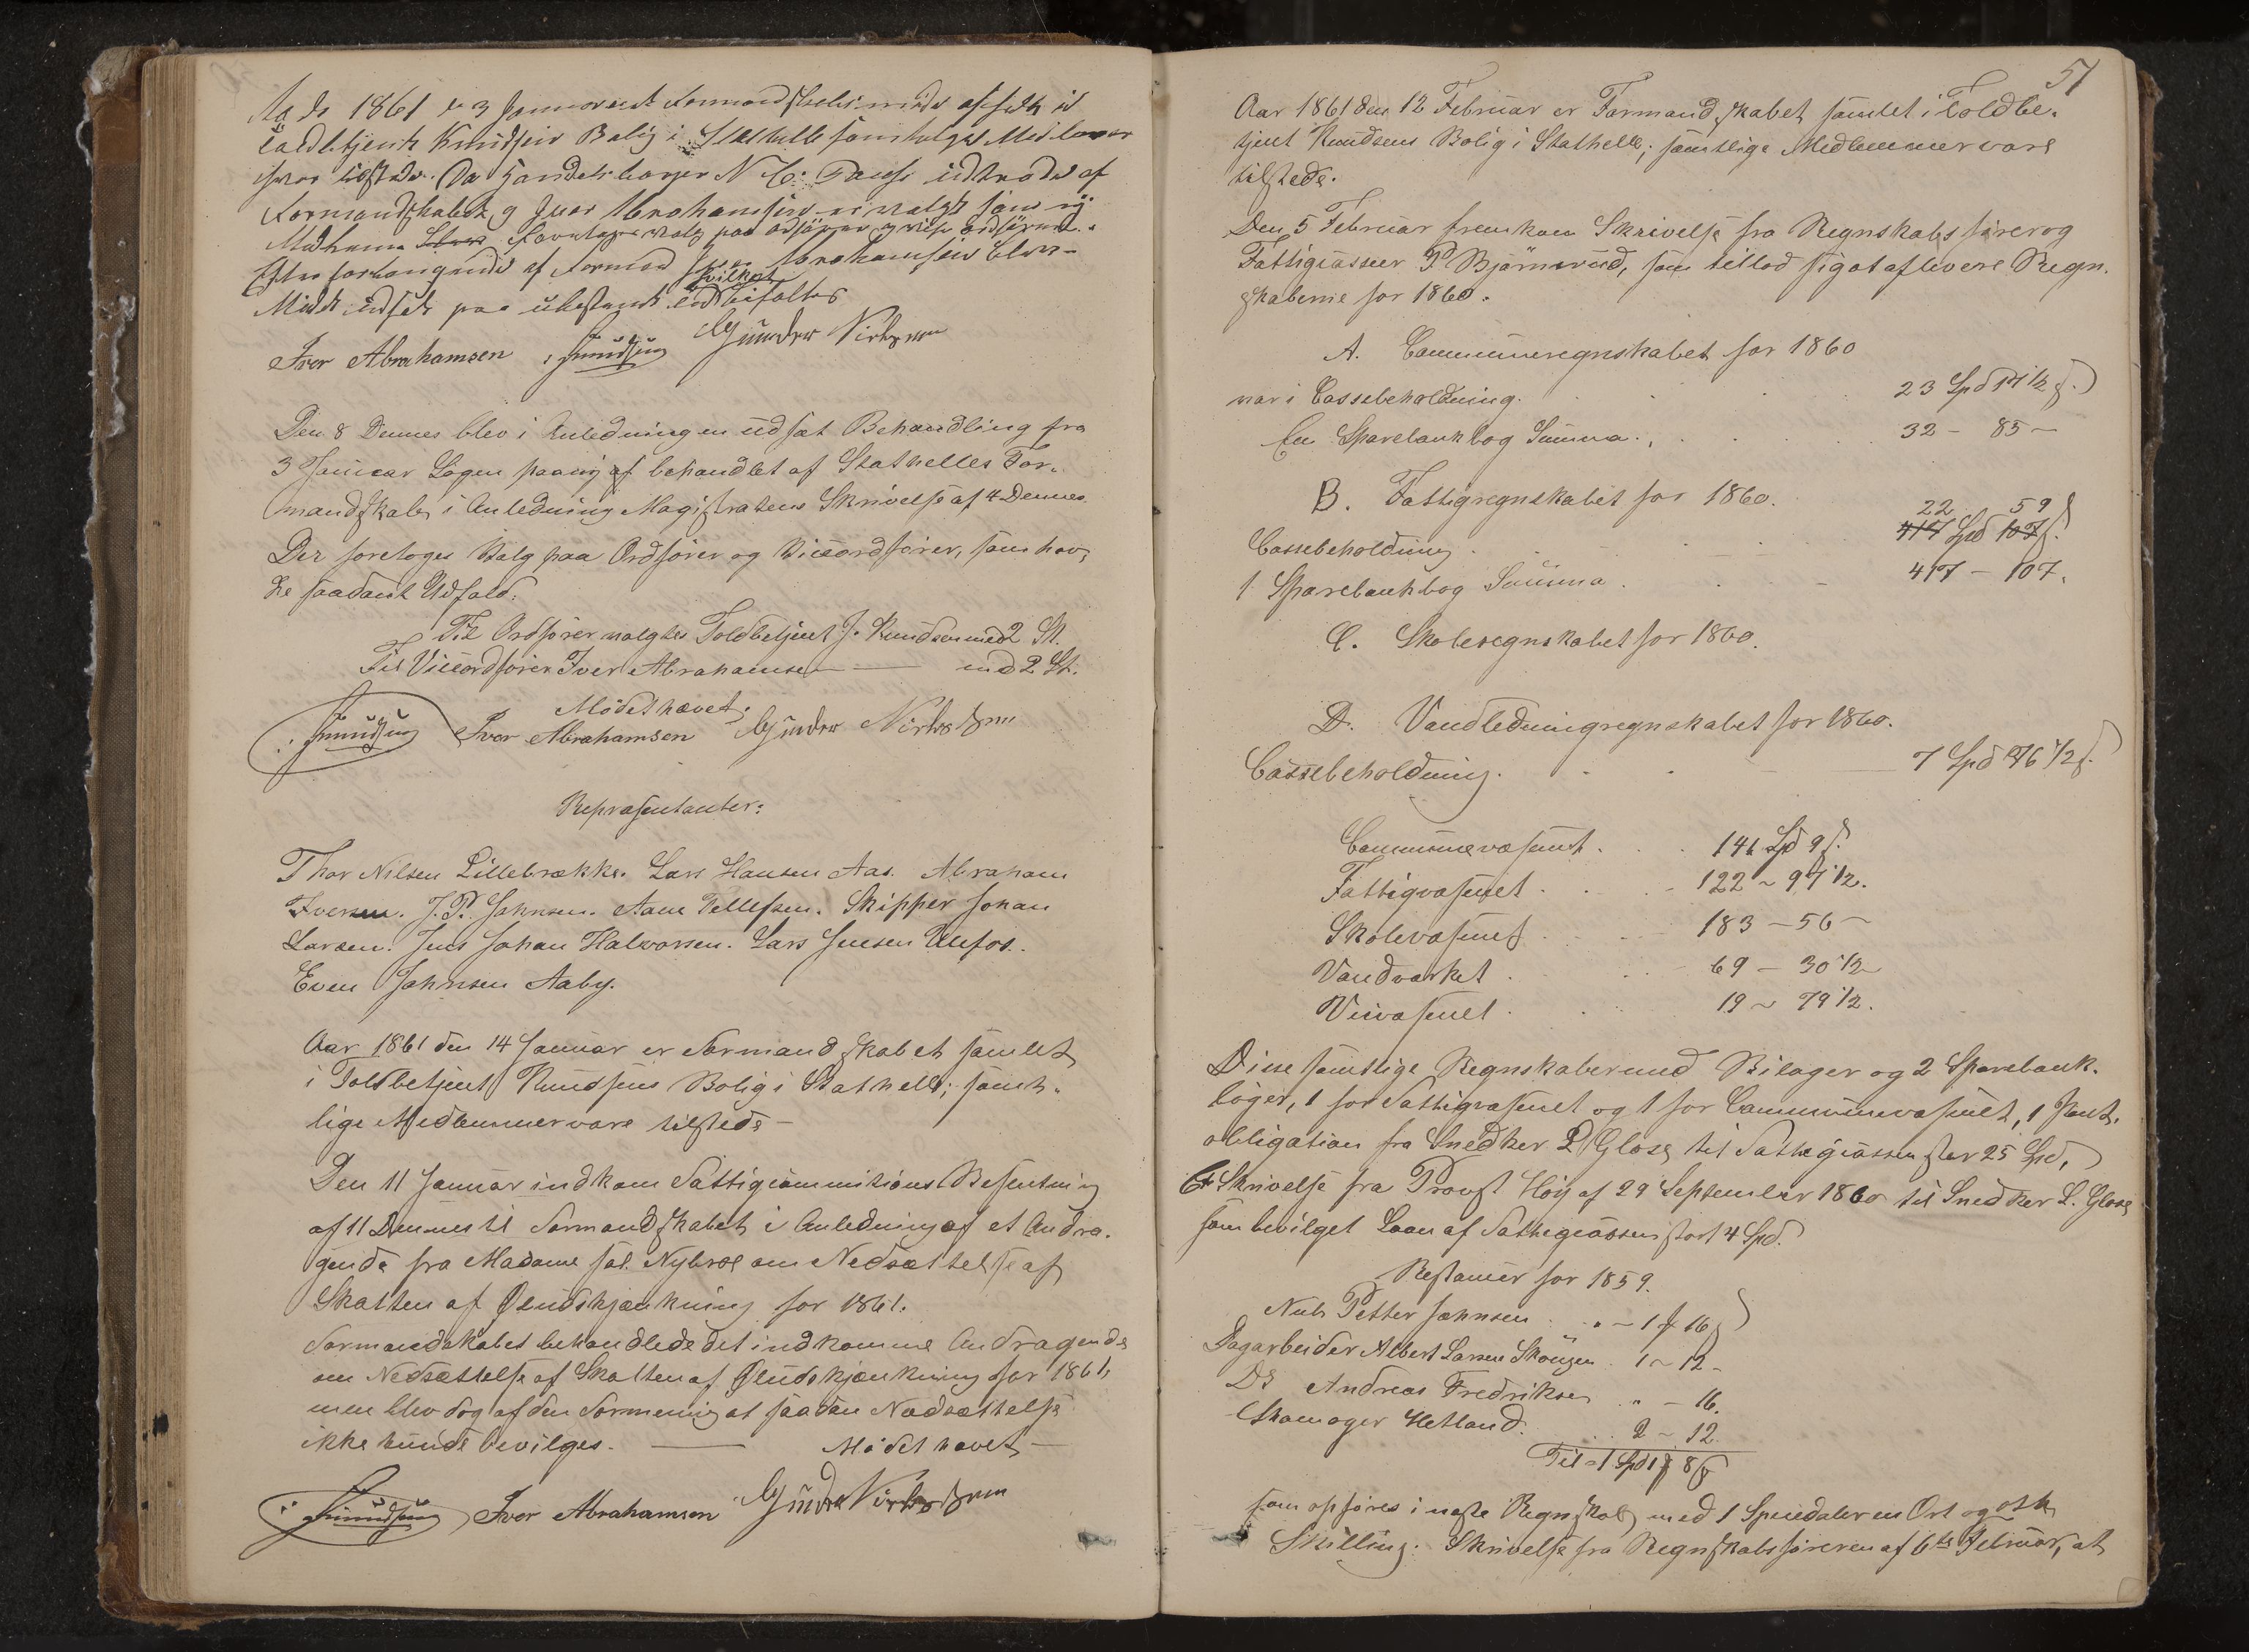 1861 3 Formandskabs møde
Toldbetjent Knudsens Bolig i Stathelle samtelige Medlemer
tilstede. Da Handelsborger N C: Pauss udtrode af
Formandskabet, og Iver Abrahamsen er valgt som ny
Medlem foretoges valg paa ordfører og vise ordfører.
Efter forlangende af Formand Iver Abrahamsen blev
Mødet udsat paa ubestemt tid hvilket bifaltes
Iver Abrahamsen Knudsen Gunder
Den 8 Dennes blev i Anledningen udsat Behandling fra
3 Januar Sagen paany af behandlet af Stathelles For-
mandskab i Anledning Magistratens Skrivelse af 4 Dennes
Der foretoges Valg paa Ordfører og Viceordfører, som hav-
de saadant Udfald:
Til Ordfører valgtes Toldbetjent J. Knudsen med 2 St.
Til Viceordfører Iver Abrahamsen — med 2 St.
Mödet hævet.
Knudsen Iver Abrahamsen Gunder
Repræsentanter:
Thor Nilsen Lillebrække. Lars Hansen Aas. Abraham
Iversen. J. P. Johnsen. Aane Tellefsen. Skipper Johan
Larsen. Jens Johan Halvorsen. Lars Jensen Ulefos.
Even Johnsen Aaby.
Aar 1861 den 14 Januar er Formandskabet samlet
i Toldbetjent Knudsens Bolig i Stathelle; samt-
lige Medlemmer vare tilstede —
Den 11 Januar indkom Fattigcommisions Besentning
af 11 Dennes til Formandskabet i Anledning af et Andra-
gende fra Madame sal. Nybroe om Nedsættelse af
Skatten af Øludskjænkning for 1861.
Formandskabet behandlede det indkomne Andragende
om Nedsættelse af Skatten af Øludskjænkning for 1861,
men blev dog af den Formening at saadan Nedsættelse
ikke kunde bevilges. — Mödet hævet —
Knudsen Iver Abrahamsen Gunder
51
Aar 1861 den 12 Februar er Formandskabet samlet i Toldbe-
tjent Knudsens Bolig i Stathelle; samtlige Medlemmer vare
tilstede.
Den 5 Februar fremkom Skrivelse fra Regnskabsfører og
Fattigcasseer P Bjørnerud, som tillod sig at aflevere Regn-
skaberne for 1860.
A. Communeregnskabet for 1860
var i Cassebeholdning. 23 Spd 1/2 ß.
En Sparebankbog Summa. 32 - 85 -
B. Fattigregnskabet for 1860.
22 59
Cassebeholdning 417 Spd 107 ß.
1 Sparebankbog Summa. 417 - 107.
C. Skoleregnskabet for 1860.
D. Vandledningregnskabet for 1860.
Cassebeholdning. 7 Spd 76 1/2 ß.
Communevæsenet . 141 Spd 9 ß.
Fattigvæsenet . 122 - 97 1/2.
Skolevæsenet . 183 - 56 -
Vandværket . 69 - 30 1/2
Veivæsenet . 19 - 79 1/2.
Disse samtlige Regnskaber med Bilager og 2 Sparebank-
bøger, 1 for Fattigvæsenet og 1 for Communevæsenet, 1 Pant-
obligation fra Snedker L Glose til Fattigcassen stor 25 Spd,
Skrivelse fra Provst Høy af 29 September 1860 til Snedker L. Glose
som bevilget Laan af Fattigcassen stort 4 Spd.
Restancer for 1859.
Niels Petter Johnsen . " - 1 16
Dagarbeider Albert Larsen Skougen 1 - 12 -
Ds Andreas Fredriksen " - 16.
Skomager Hetland. 2 - 12
Til 1 Spd 1 8 ß
som opføres i neste Regnskab med 1 Speciedaler en Ort og otte
Skilling. Skrivelse fra Regnskabsføreren af 6te Februar, at